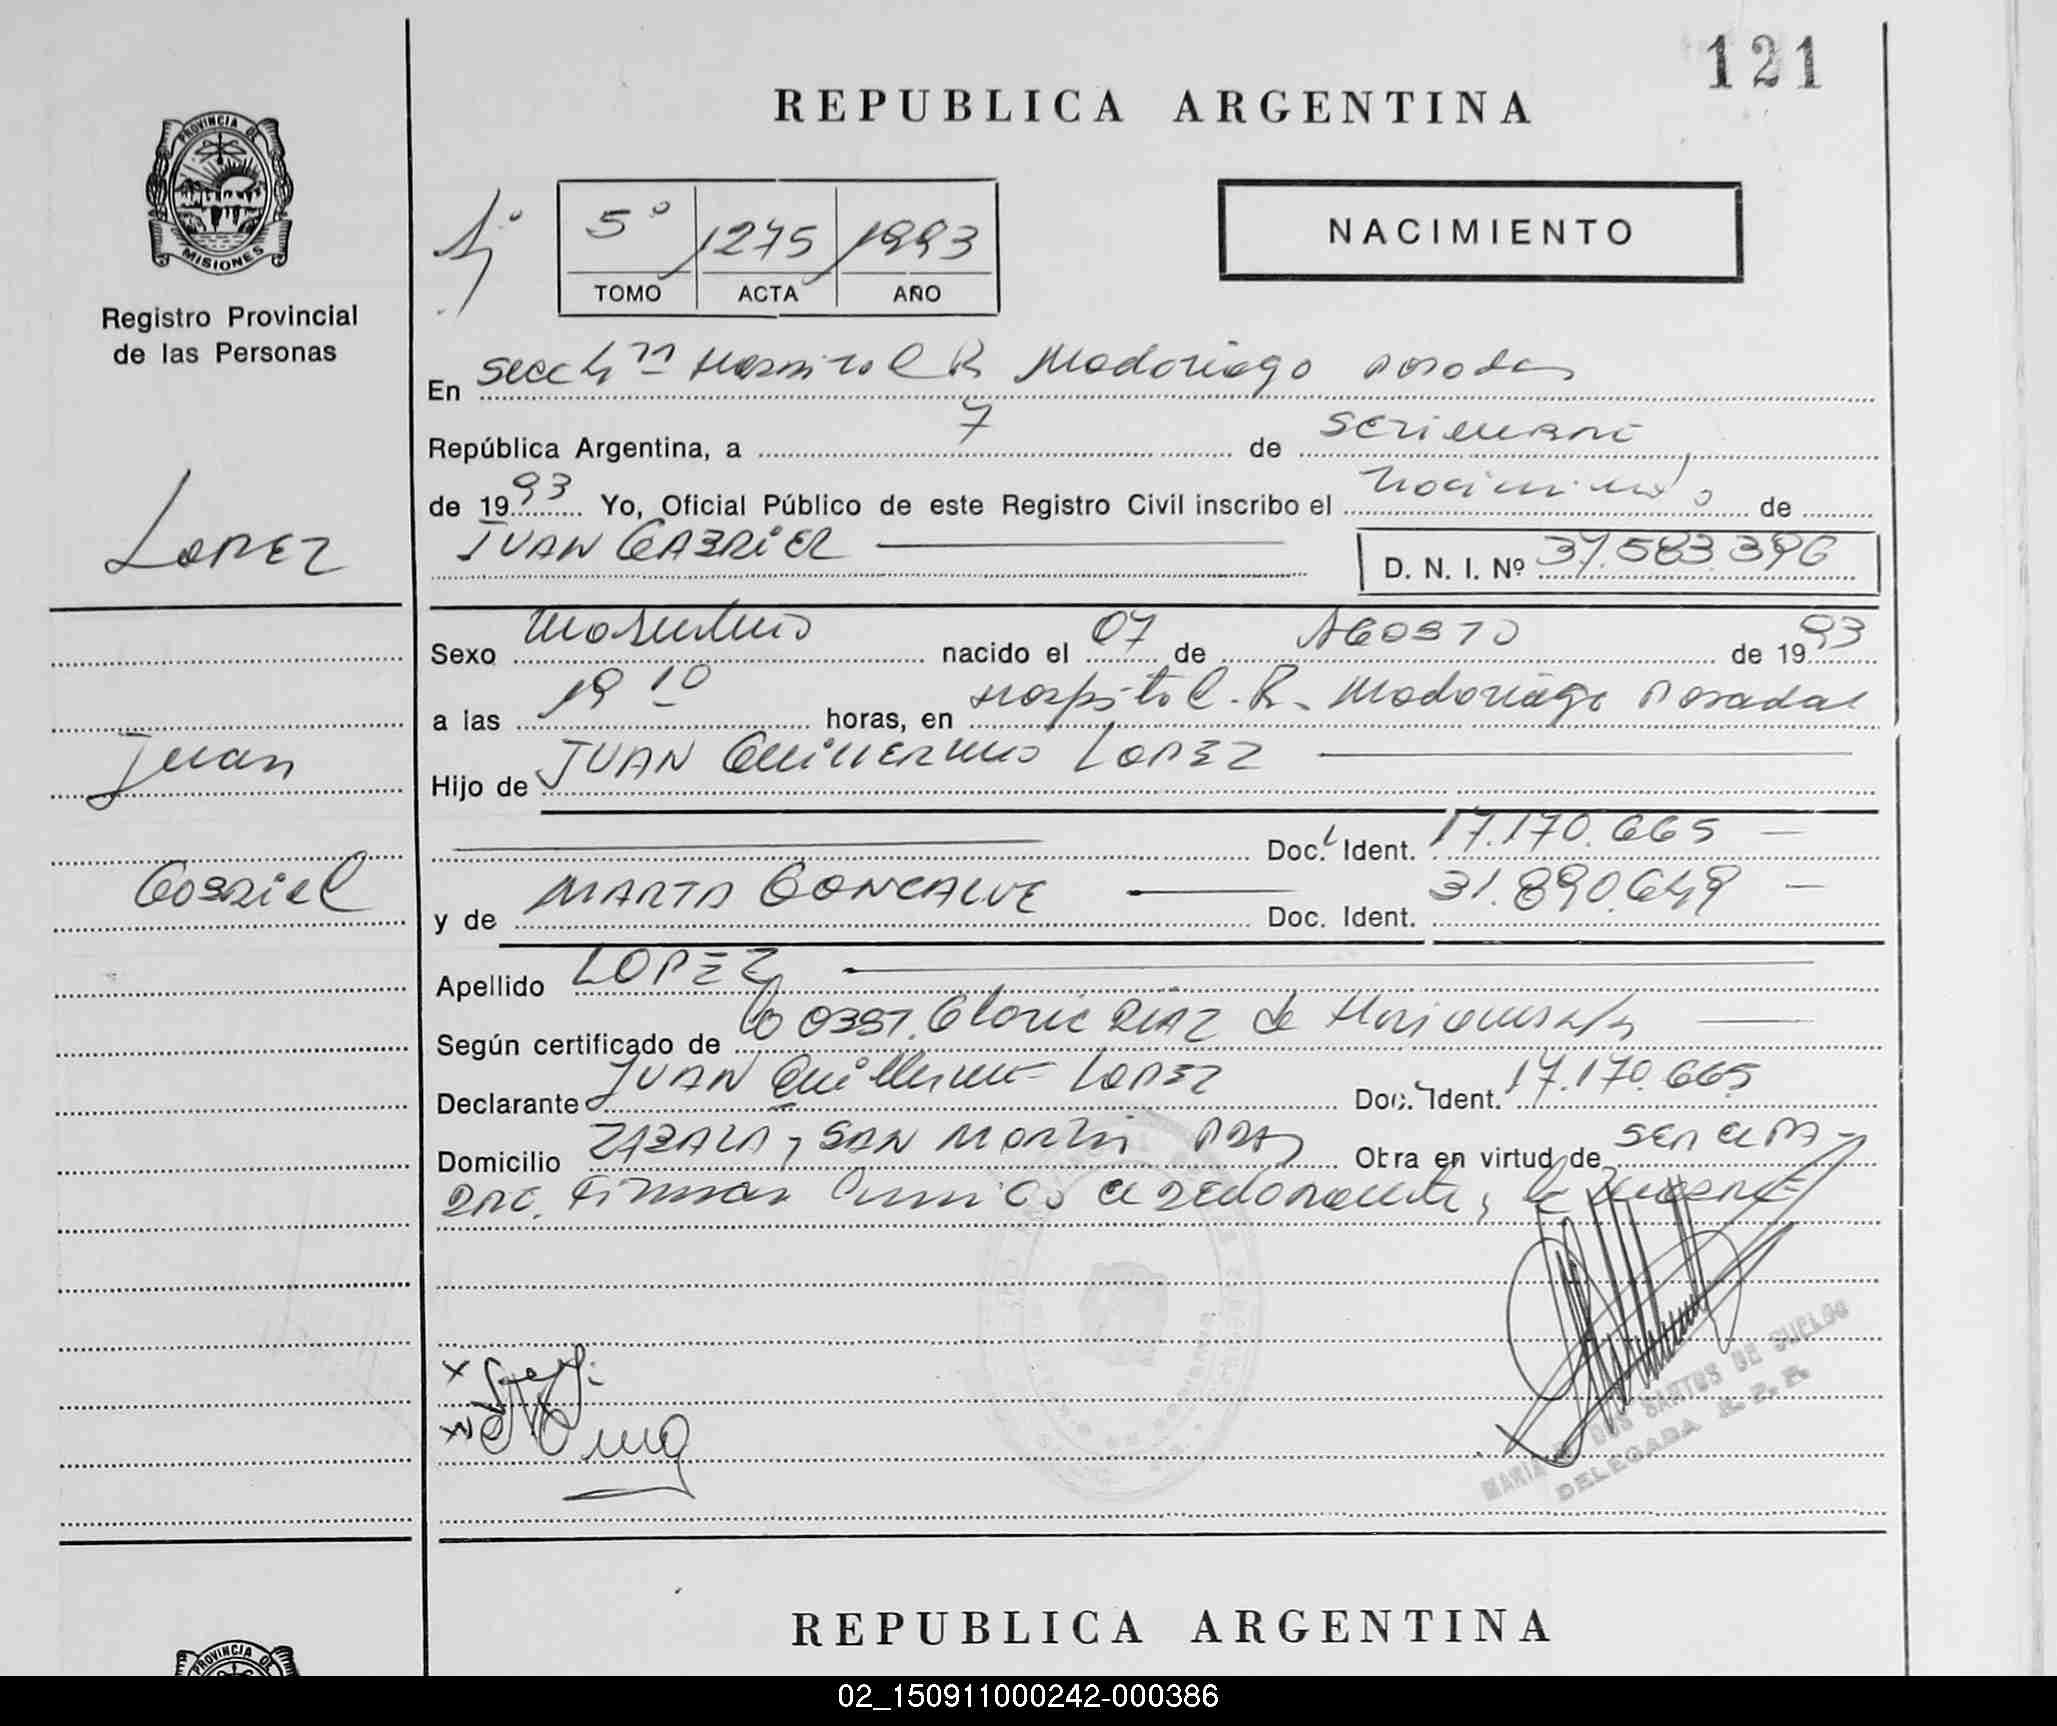 121
REPUBLICA ARGENTINA
PROVINCIA DE
MISIONES
Registro Provincial
de las Personas
5º 1275 1993
TOMO ACTA AÑO
NACIMIENTO
En Secc 4ª Hospital R Madariaga Posadas
República Argentina, a 7 de SETIEMBRE
de 1993 Yo, Oficial Público de este Registro Civil inscribo el Nacimiento de
LOPEZ
JUAN GABRIEL
D. N. I. Nº 37.583.396
Sexo Masculino nacido el 07 de AGOSTO de 1993
a las 19 10 horas, en Hospital R. Madariaga Posadas
Juan
Hijo de JUAN Guillermo LOPEZ
Doc. Ident. 17.170.665
Gabriel
y de MARTA GONCALVE Doc. Ident. 31.890.649
Apellido LOPEZ
Según certificado de 0351. Gloria DIAZ de
Declarante JUAN Guillermo LOPEZ Doc. Ident. 17.170.665
Domicilio ZABALA y SAN Martin Obra en virtud de
Firman
MARIA DOS SANTOS DE SUELDO
DELEGADA R. P. P.
REPUBLICA ARGENTINA
PROVINCIA DE
02_150911000242-000386